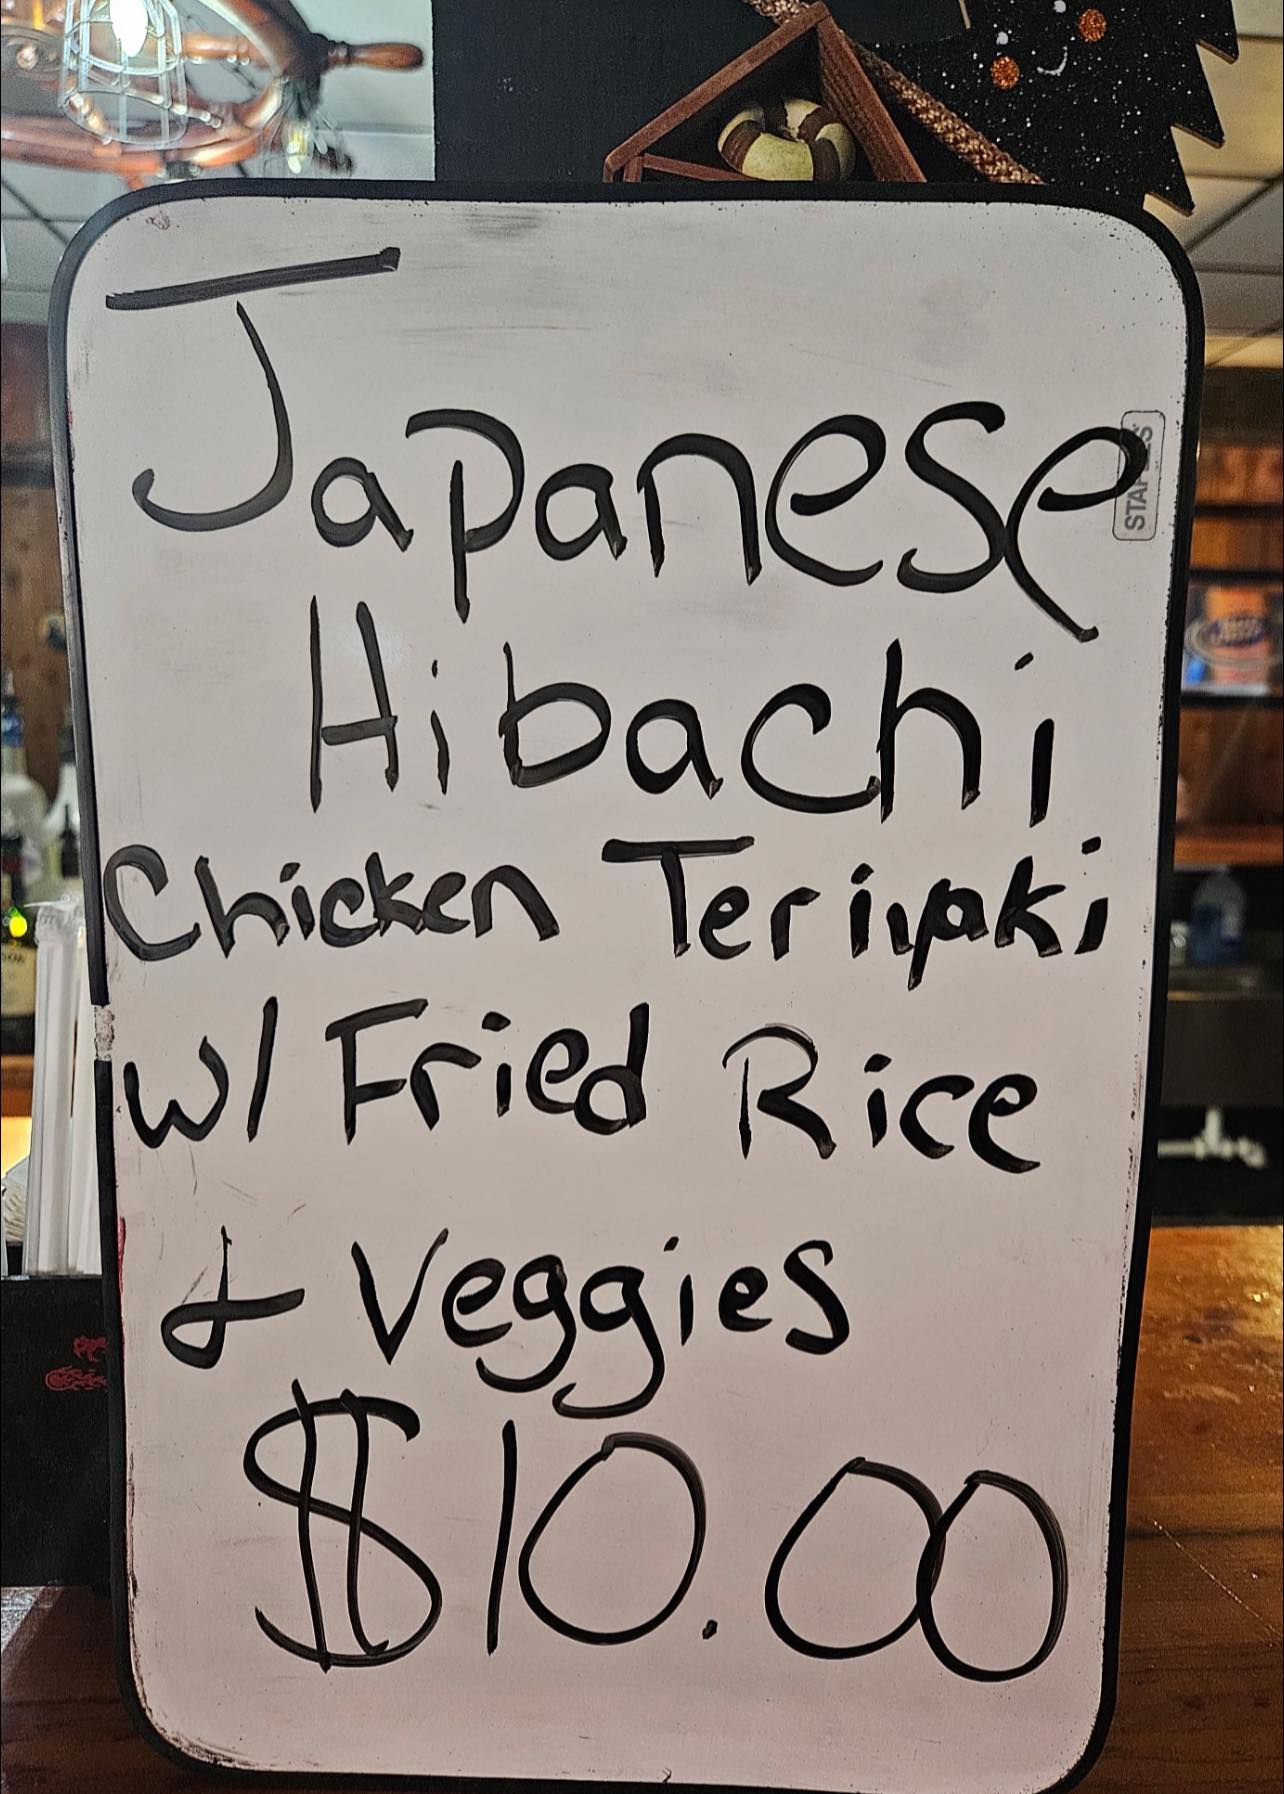 Japanese
Hibachi
Chicken Teriyaki
w/ Fried Rice
& Veggies
$10.00
STAPLES